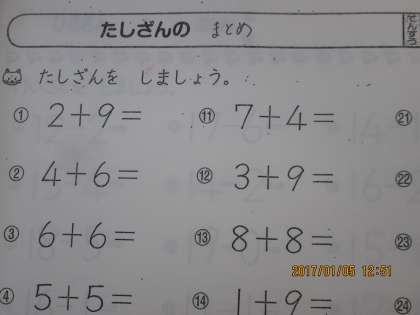 たしざんの まとめ
てんすう
たしざんを しましょう。
① 2+9=
② 4+6=
③ 6+6=
④ 5+5=
⑪ 7+4=
⑫ 3+9=
⑬ 8+8=
⑭ 1+9=
㉑
㉒
㉓
㉔
2017/01/05 12:51